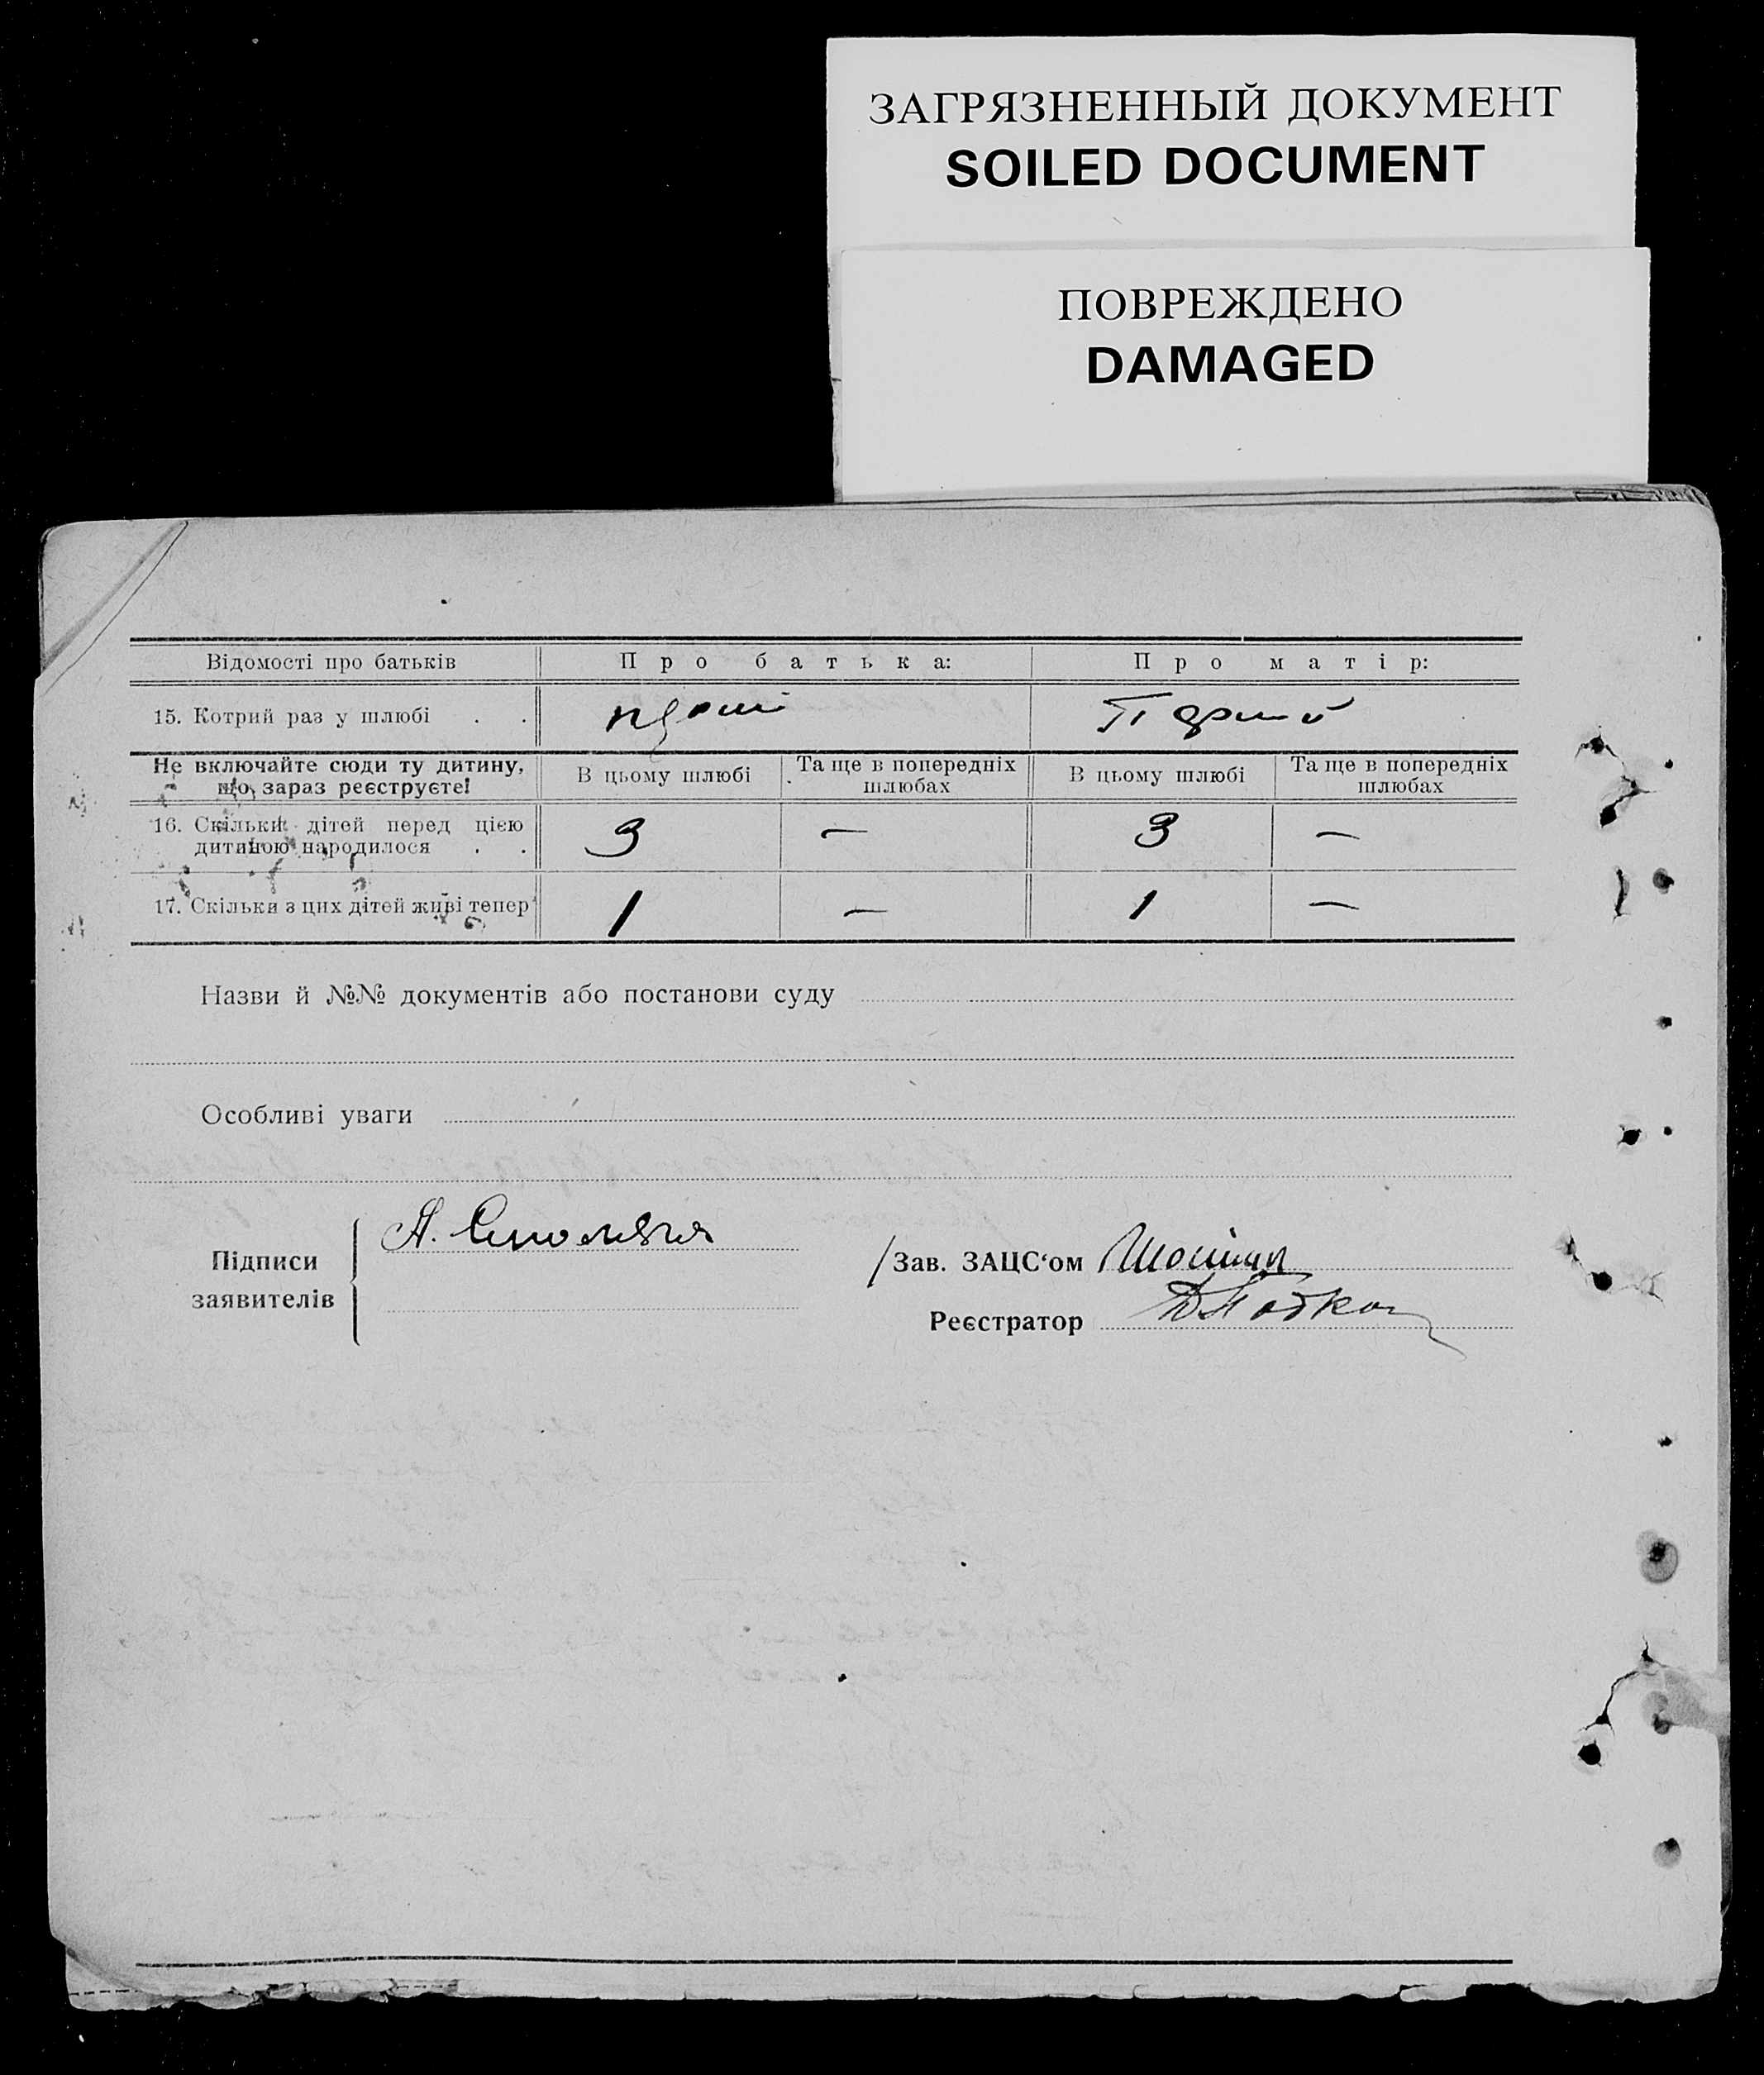 ЗАГРЯЗНЕННЫЙ ДОКУМЕНТ
SOILED DOCUMENT
ПОВРЕЖДЕНО
DAMAGED
Відомості про батьків Про батька: Про матір:
15. Котрий раз у шлюбі . .
Не включайте сюди ту дитину, що зараз реєструєте! В цьому шлюбі Та ще в попередніх шлюбах В цьому шлюбі Та ще в попередніх шлюбах
16. Скільки дітей перед цією
дитиною народилося . . 3 — 3 —
17. Скільки з цих дітей живі тепер 1 — 1 —
Назви й №№ документів або постанови суду
Особливі уваги
Підписи
заявителів
А.
/Зав. ЗАЦС‘ом
Реєстратор